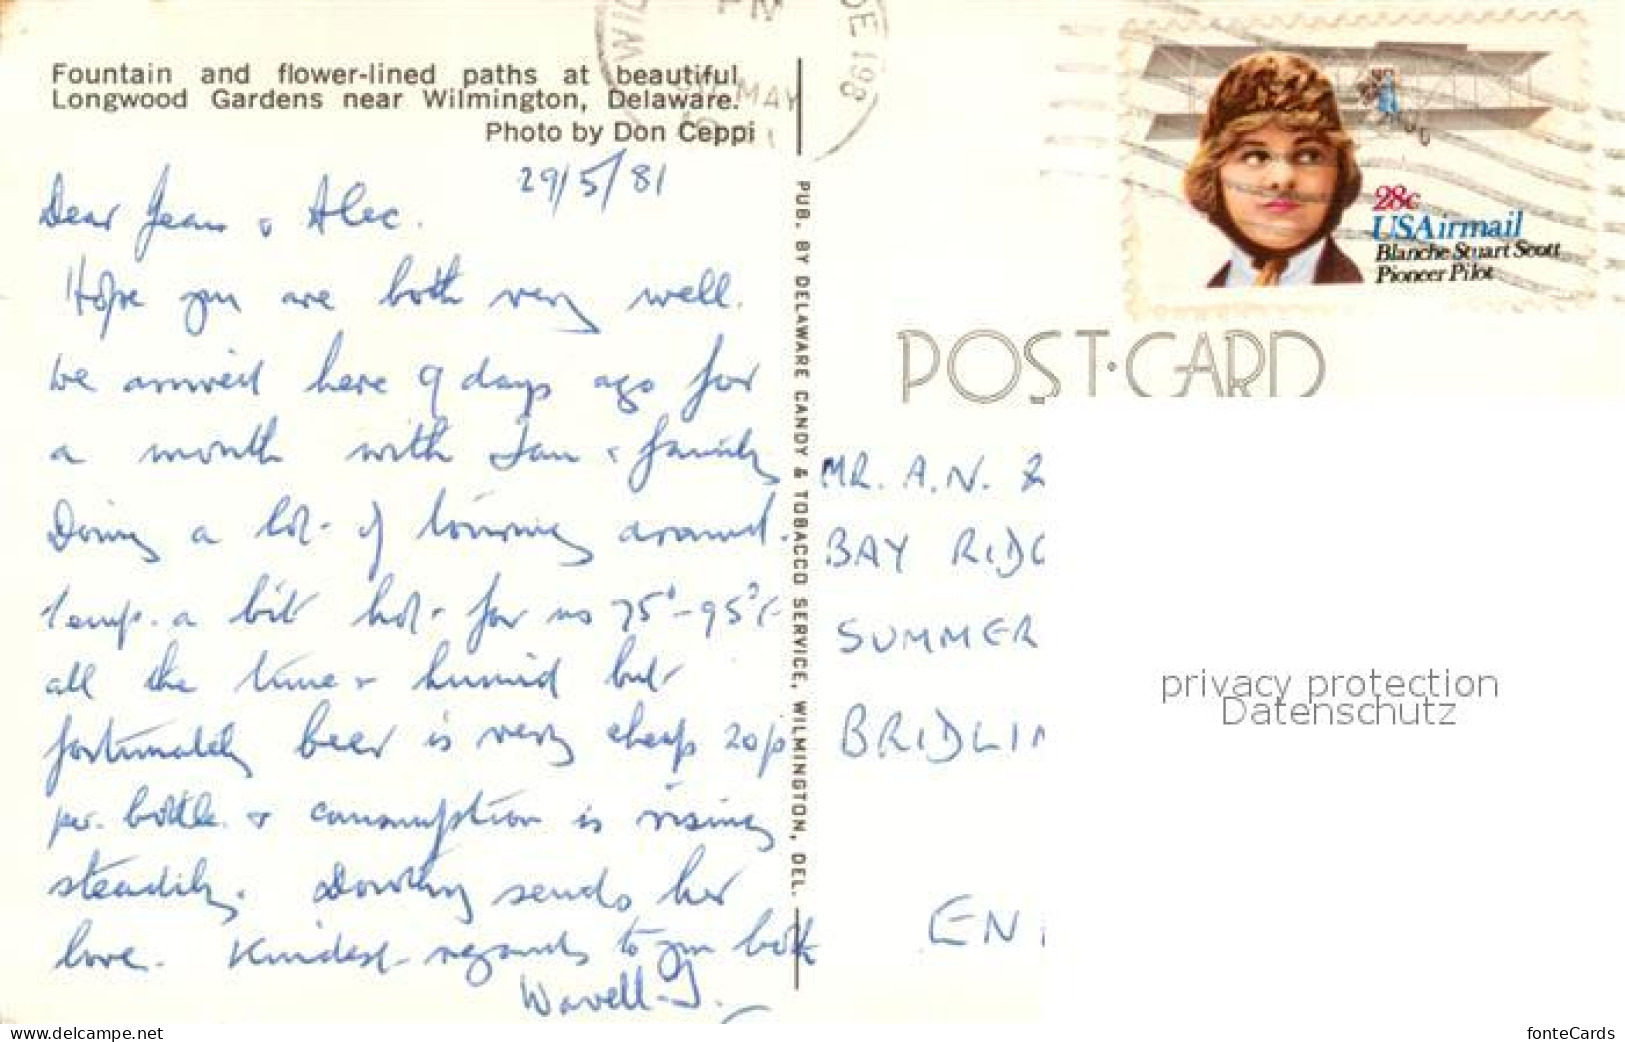 Fountain and flower-lined paths at beautiful
Longwood Gardens near Wilmington, Delaware.
Photo by Don Ceppi
29/5/81
Dear Jean & Alec.
Hope you are both very well.
We arrived here 9 days ago for
a month with Ian & family
Doing a lot of touring around.
temp. a bit hot for us 75°-95°F
all the time & humid but
fortunately beer is very cheap 20p
per. bottle. & consumption is rising
steadily. Dorothy sends her
love. Kindest regards to you both
Wavell
PUB. BY DELAWARE CANDY & TOBACCO SERVICE, WILMINGTON, DEL.
MAY
DE 198
28c
USAirmail
Blanche Stuart Scott
Pioneer Pilot
POST·CARD
MR. A.N. &
BAY RIDG
SUMMER
BRIDLIN
EN
privacy protection
Datenschutz
www.delcampe.net
fonteCards